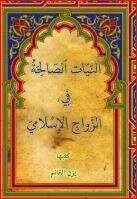 النِّيَّاتُ الصَّالِحَةُ
فِي
الزَّوَاجِ الإِسْلَامِيِّ
كتبها
يزن الغانم